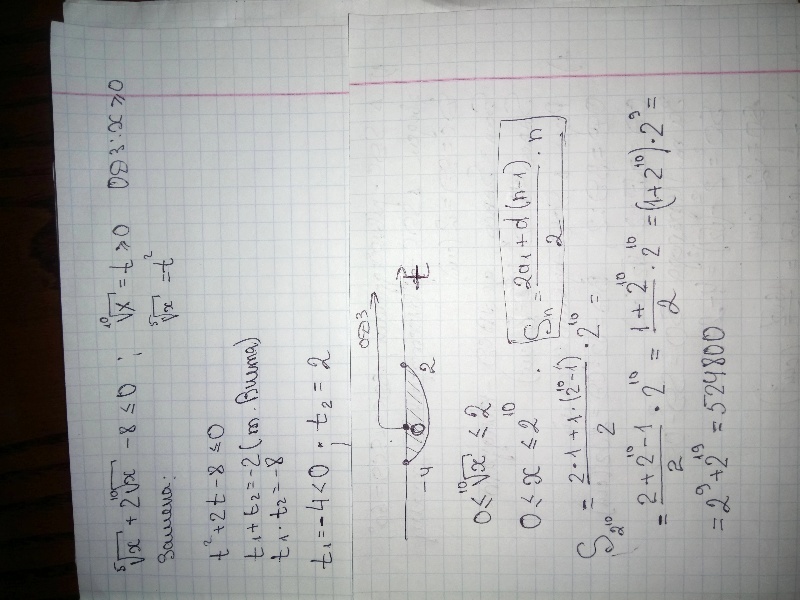 ⁵√x + 2 ¹⁰√x − 8 ≤ 0 ; ¹⁰√x = t ≥ 0 ОДЗ: x ≥ 0
Замена: ⁵√x = t²
t² + 2t − 8 ≤ 0
t₁ + t₂ = −2 (т. Виета)
t₁ · t₂ = −8
t₁ = −4 < 0 ; t₂ = 2
ОДЗ
−4 0 2 t
0 ≤ ¹⁰√x ≤ 2
0 ≤ x ≤ 2¹⁰ . Sₙ = (2a₁ + d(n−1))/2 · n
S₂¹⁰ = (2·1 + 1·(2¹⁰−1))/2 · 2¹⁰ =
= (2 + 2¹⁰ − 1)/2 · 2¹⁰ = (1 + 2¹⁰)/2 · 2¹⁰ = (1 + 2¹⁰) · 2⁹ =
= 2⁹ + 2¹⁹ = 524800